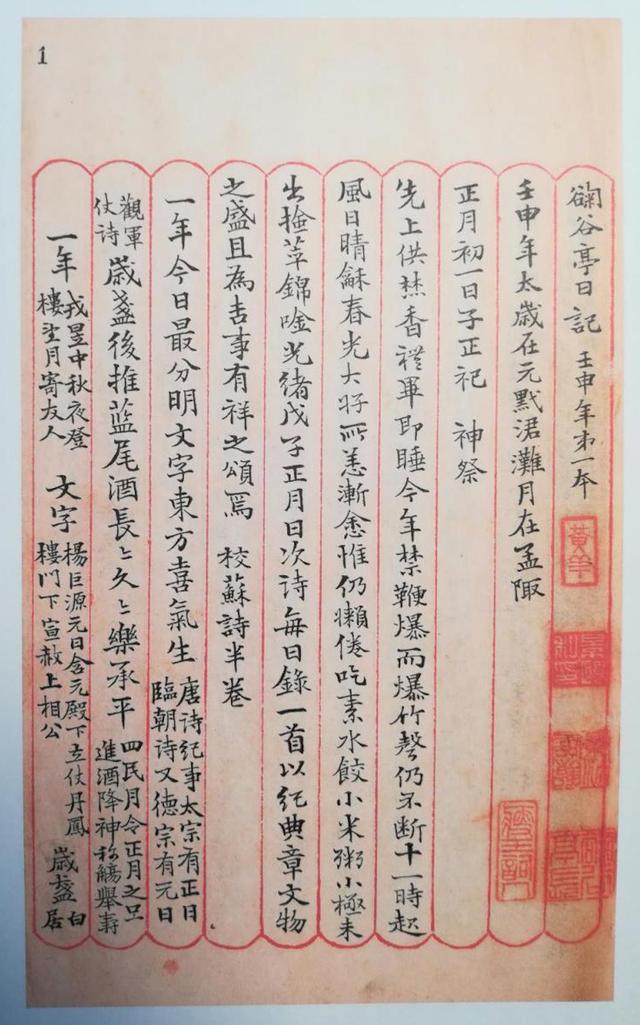 1
谷亭日記 壬申年第一本
壬申年太歲在元默涒灘月在孟陬
正月初一日子正祀 神祭
先上供焚香禮畢即睡今年禁鞭爆而爆竹聲仍不斷十一時起
風日晴龢春光大好所恙漸愈惟仍懶倦吃素水餃小米粥小極未
出撿萃錦唫光緒戊子正月日次詩每日錄一首以紀典章文物
之盛且為吉事有祥之頌焉 校蘇詩半卷
一年今日最分明文字東方喜氣生 唐詩紀事太宗有正日臨朝詩又德宗有元日
觀軍仗詩 歲盞後推藍尾酒長〻久〻樂承平 四民月令正月之旦進酒降神称觴舉壽
一年 戎昱中秋夜澄樓望月寄友人 文字 楊巨源元日含元殿下立仗丹鳳樓門下宣赦上相公 歲盞 白居